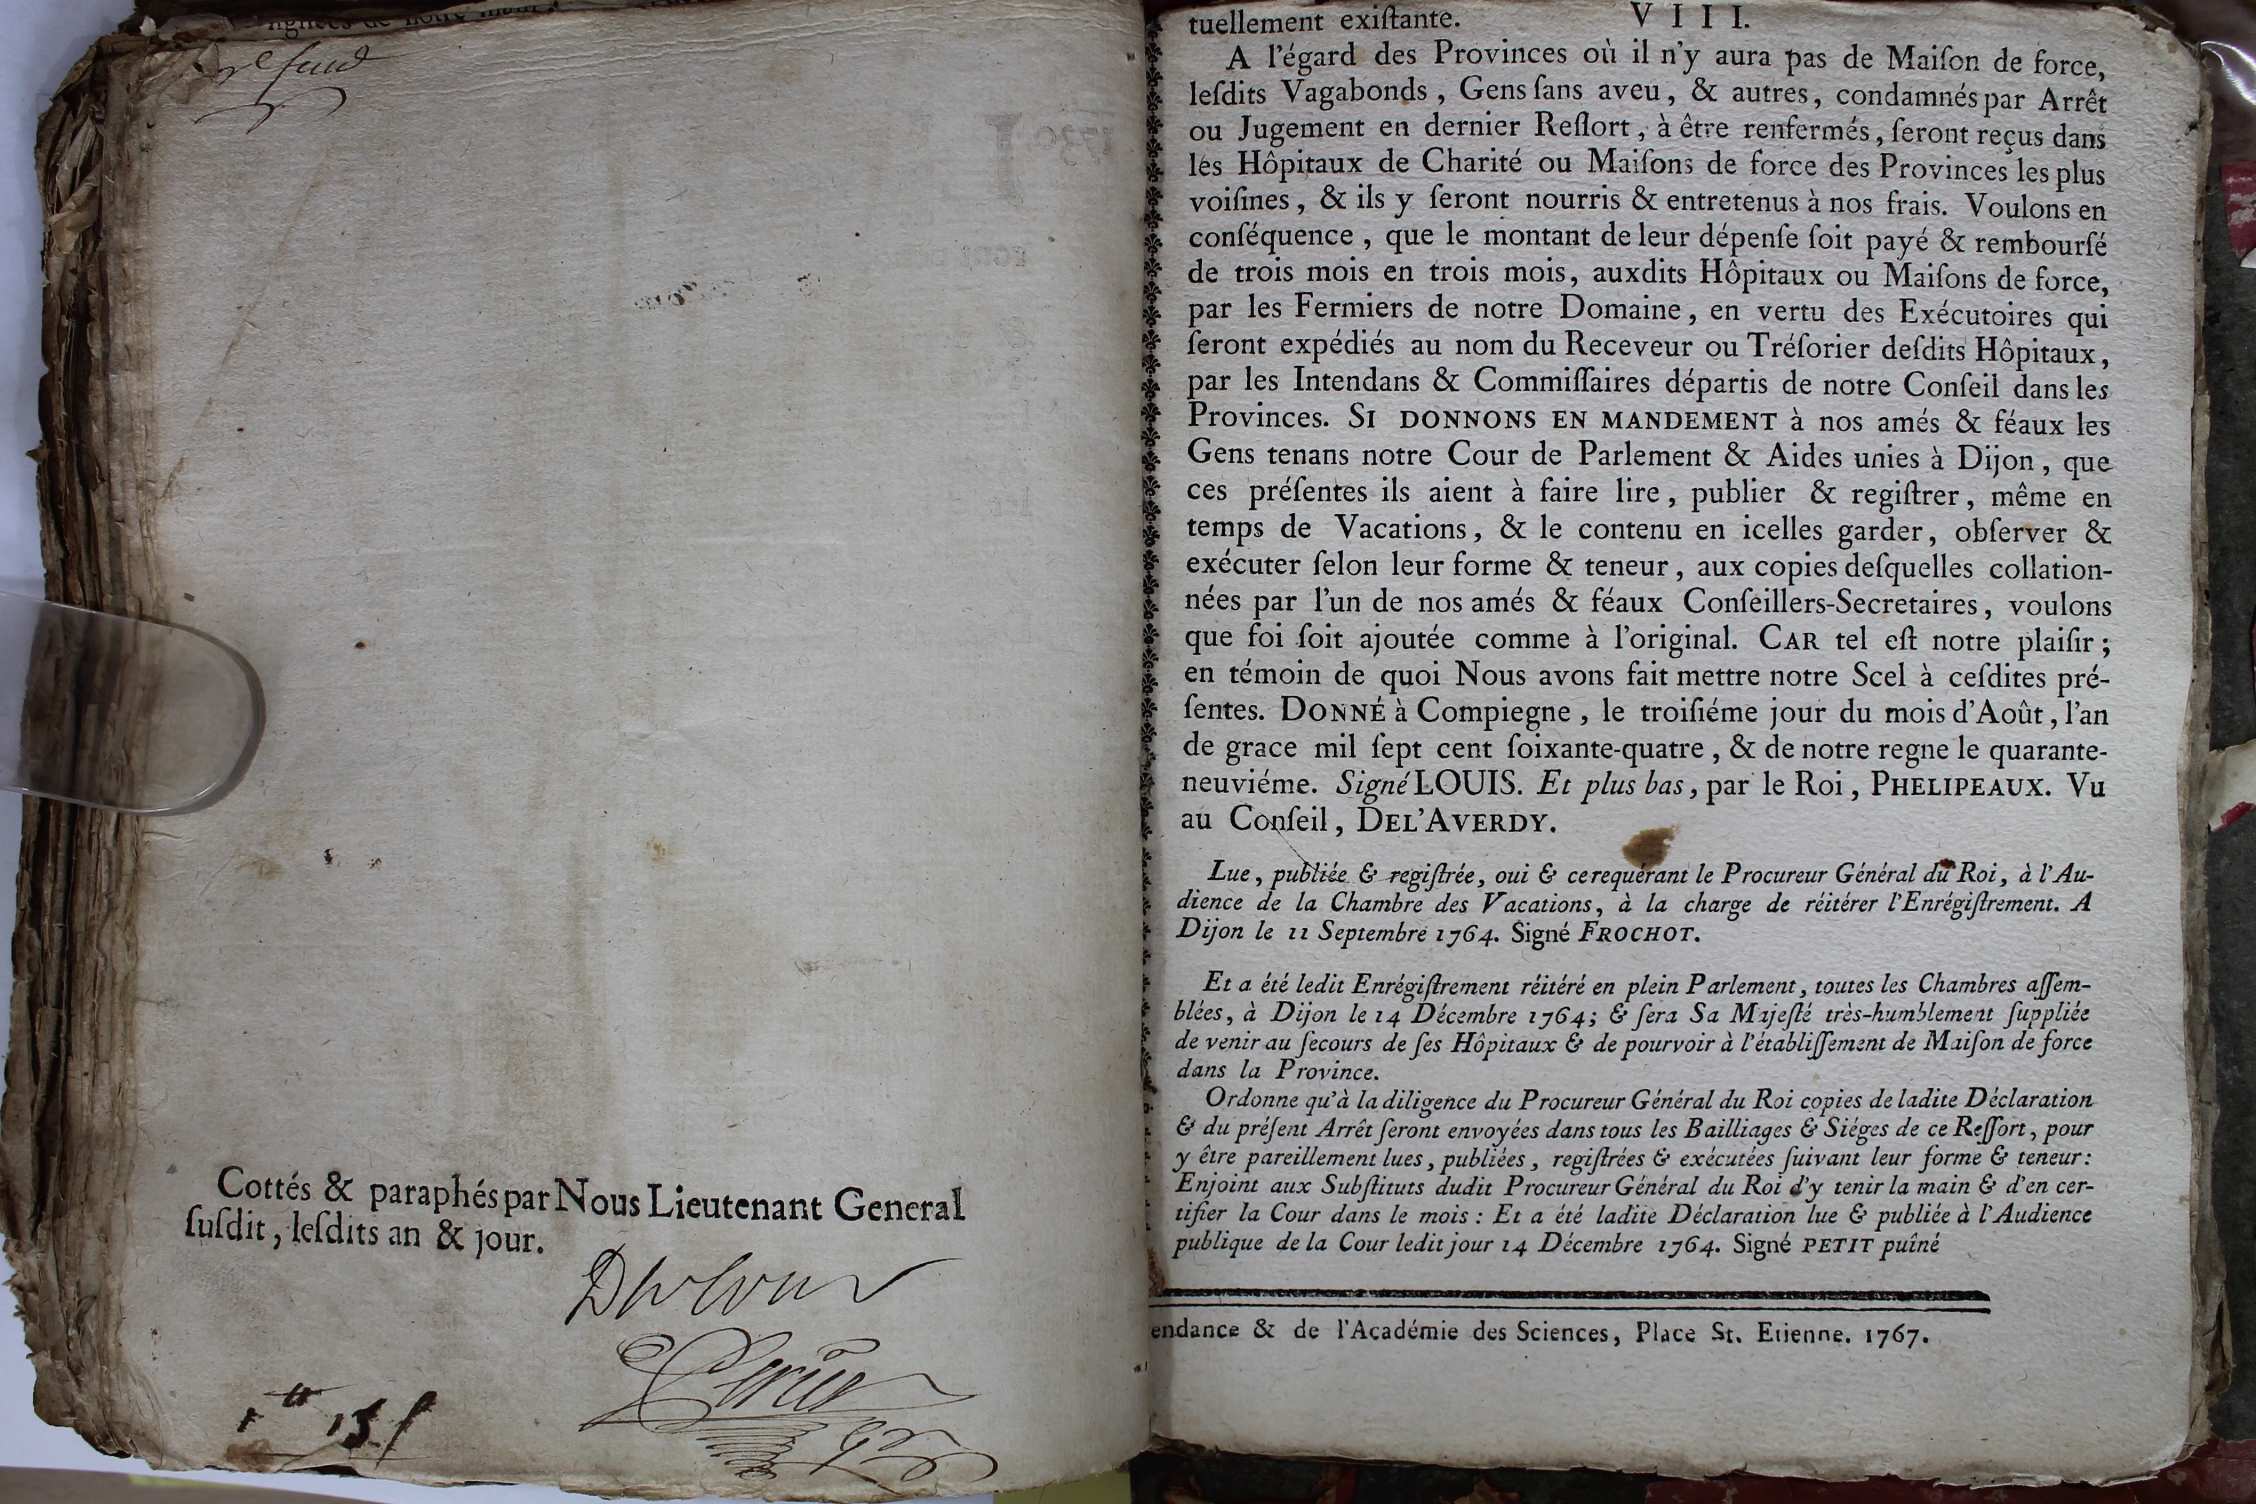 Cottés & paraphés par Nous Lieutenant General
ſuſdit, leſdits an & jour.
tuellement exiſtante.
VIII.
A l'égard des Provinces où il n'y aura pas de Maiſon de force,
leſdits Vagabonds, Gens ſans aveu, & autres, condamnés par Arrêt
ou Jugement en dernier Reſſort, à être renfermés, ſeront reçus dans
les Hôpitaux de Charité ou Maiſons de force des Provinces les plus
voiſines, & ils y ſeront nourris & entretenus à nos frais. Voulons en
conſéquence, que le montant de leur dépenſe ſoit payé & rembourſé
de trois mois en trois mois, auxdits Hôpitaux ou Maiſons de force,
par les Fermiers de notre Domaine, en vertu des Exécutoires qui
ſeront expédiés au nom du Receveur ou Tréſorier deſdits Hôpitaux,
par les Intendans & Commiſſaires départis de notre Conſeil dans les
Provinces. SI DONNONS EN MANDEMENT à nos amés & féaux les
Gens tenans notre Cour de Parlement & Aides unies à Dijon, que
ces préſentes ils aient à faire lire, publier & regiſtrer, même en
temps de Vacations, & le contenu en icelles garder, obſerver &
exécuter ſelon leur forme & teneur, aux copies deſquelles collation-
nées par l'un de nos amés & féaux Conſeillers-Secretaires, voulons
que foi ſoit ajoutée comme à l'original. CAR tel eſt notre plaiſir;
en témoin de quoi Nous avons fait mettre notre Scel à ceſdites pré-
ſentes. DONNÉ à Compiegne, le troiſiéme jour du mois d'Août, l'an
de grace mil ſept cent ſoixante-quatre, & de notre regne le quarante-
neuviéme. Signé LOUIS. Et plus bas, par le Roi, PHELIPEAUX. Vu
au Conſeil, DEL'AVERDY.
Lue, publiée & regiſtrée, oui & ce requérant le Procureur Général du Roi, à l'Au-
dience de la Chambre des Vacations, à la charge de réitérer l'Enrégiſtrement. A
Dijon le 11 Septembre 1764. Signé FROCHOT.
Et a été ledit Enrégiſtrement réitéré en plein Parlement, toutes les Chambres aſſem-
blées, à Dijon le 14 Décembre 1764; & ſera Sa Majeſté très-humblement ſuppliée
de venir au ſecours de ſes Hôpitaux & de pourvoir à l'établiſſement de Maiſon de force
dans la Province.
Ordonne qu'à la diligence du Procureur Général du Roi copies de ladite Déclaration
& du préſent Arrêt ſeront envoyées dans tous les Bailliages & Siéges de ce Reſſort, pour
y être pareillement lues, publiées, regiſtrées & exécutées ſuivant leur forme & teneur:
Enjoint aux Subſtituts dudit Procureur Général du Roi d'y tenir la main & d'en cer-
tifier la Cour dans le mois: Et a été ladite Déclaration lue & publiée à l'Audience
publique de la Cour ledit jour 14 Décembre 1764. Signé PETIT puîné
endance & de l'Académie des Sciences, Place St. Etienne. 1767.